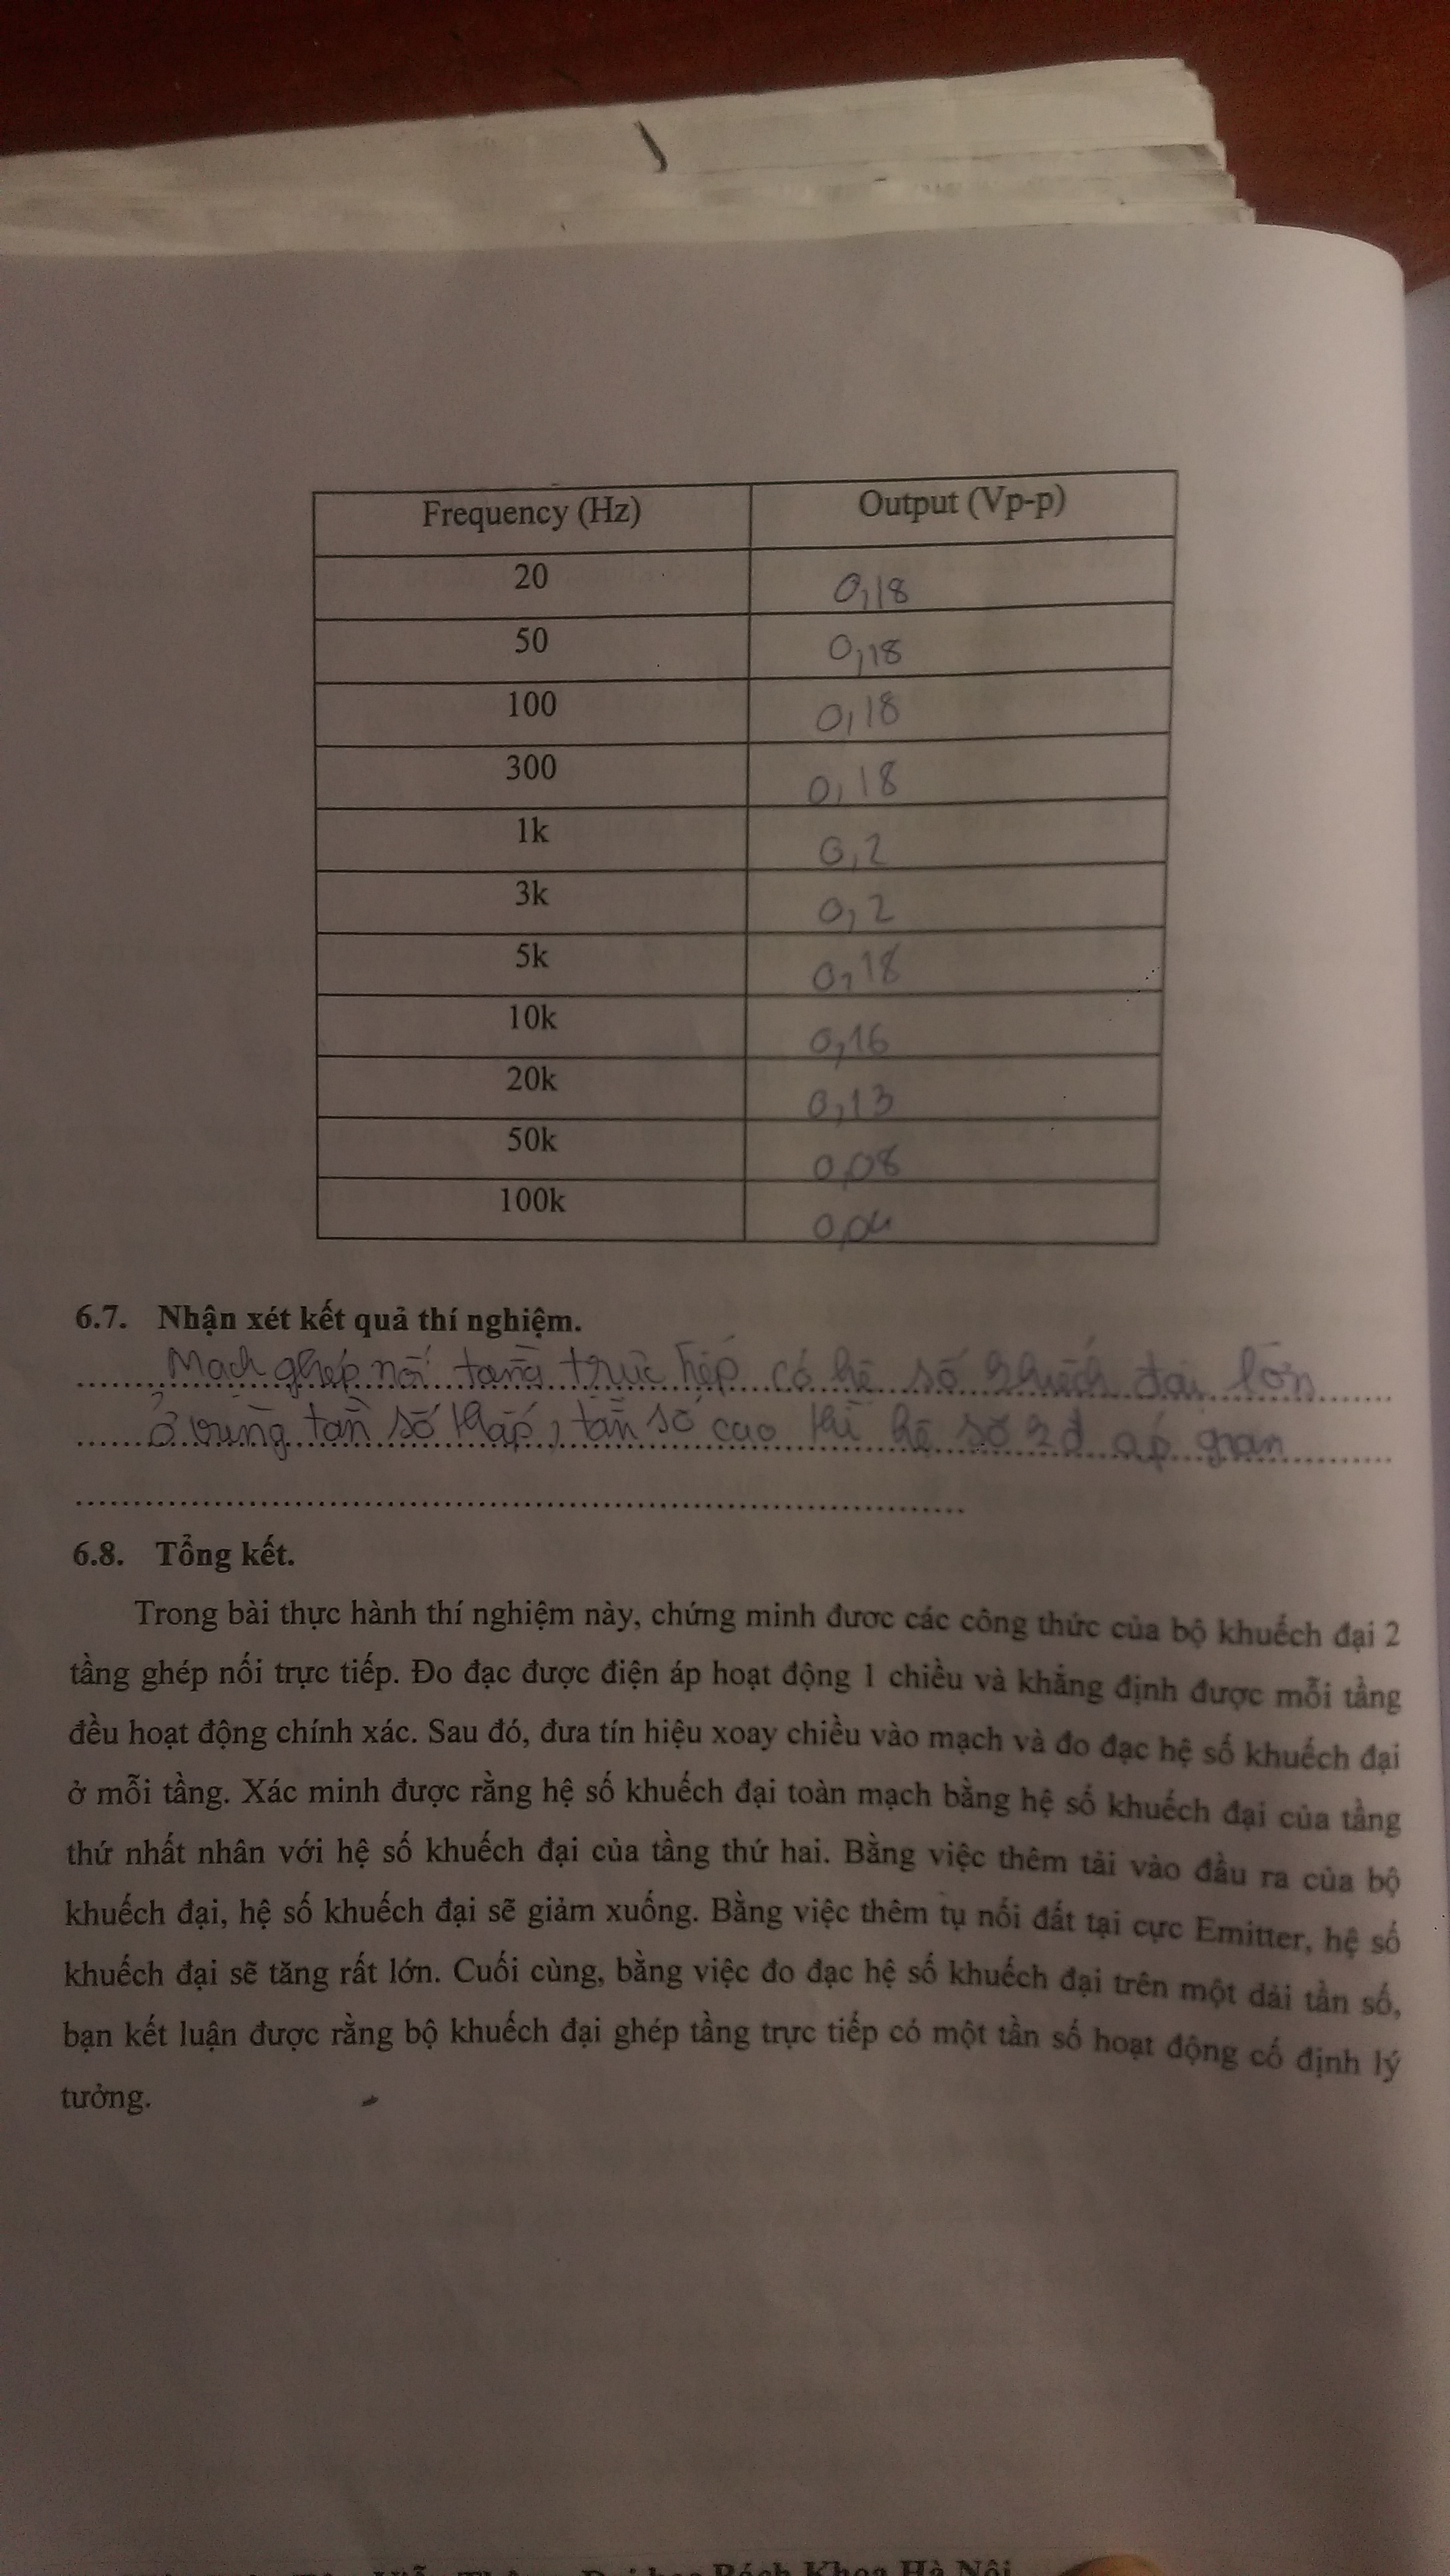 Frequency (Hz) Output (Vp-p)
20 0,18
50 0,18
100 0,18
300 0,18
1k 0,2
3k 0,2
5k 0,18
10k 0,16
20k 0,13
50k 0,08
100k 0,04
6.7. Nhận xét kết quả thí nghiệm.
Mạch ghép nối tầng trực tiếp có hệ số khuếch đại lớn
ở vùng tần số thấp, tần số cao thì hệ số kđ áp giảm
6.8. Tổng kết.
Trong bài thực hành thí nghiệm này, chứng minh đươc các công thức của bộ khuếch đại 2
tầng ghép nối trực tiếp. Đo đạc được điện áp hoạt động 1 chiều và khẳng định được mỗi tầng
đều hoạt động chính xác. Sau đó, đưa tín hiệu xoay chiều vào mạch và đo đạc hệ số khuếch đại
ở mỗi tầng. Xác minh được rằng hệ số khuếch đại toàn mạch bằng hệ số khuếch đại của tầng
thứ nhất nhân với hệ số khuếch đại của tầng thứ hai. Bằng việc thêm tải vào đầu ra của bộ
khuếch đại, hệ số khuếch đại sẽ giảm xuống. Bằng việc thêm tụ nối đất tại cực Emitter, hệ số
khuếch đại sẽ tăng rất lớn. Cuối cùng, bằng việc đo đạc hệ số khuếch đại trên một dải tần số,
bạn kết luận được rằng bộ khuếch đại ghép tầng trực tiếp có một tần số hoạt động cố định lý
tưởng.
Viễn Thông Đại học Bách Khoa Hà Nội